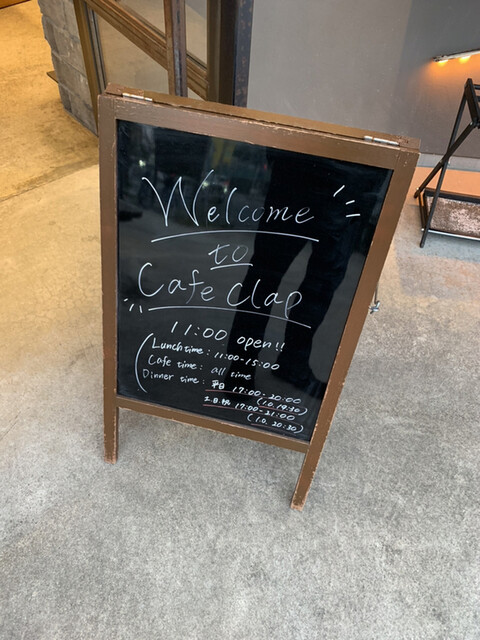 Welcome
to
Cafe Clap
11:00 open!!
Lunch time: 11:00-15:00
Cafe time: all time
Dinner time: 平日 17:00-20:00
(l.o. 19:30)
土日祝 17:00-21:00
(l.o. 20:30)